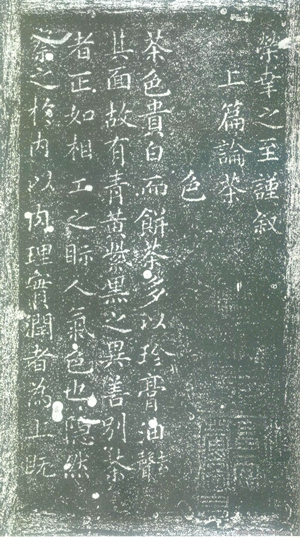 榮幸之至謹叙
上篇論茶
色
茶色貴白而餅茶多以珍膏油
其面故有青黃紫黑之異善別茶
者正如相工之眎人氣色也隱然
察之於內以肉理實潤者為上既